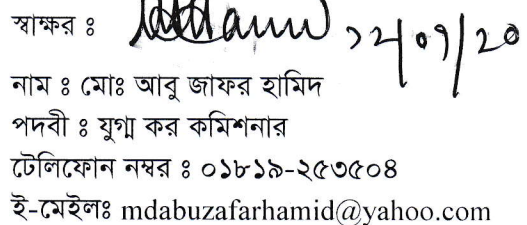 স্বাক্ষর ঃ ১২/০৭/২০
নাম ঃ মোঃ আবু জাফর হামিদ
পদবী ঃ যুগ্ম কর কমিশনার
টেলিফোন নম্বর ঃ ০১৮১৯-২৫৩৫০৪
ই-মেইলঃ mdabuzafarhamid@yahoo.com